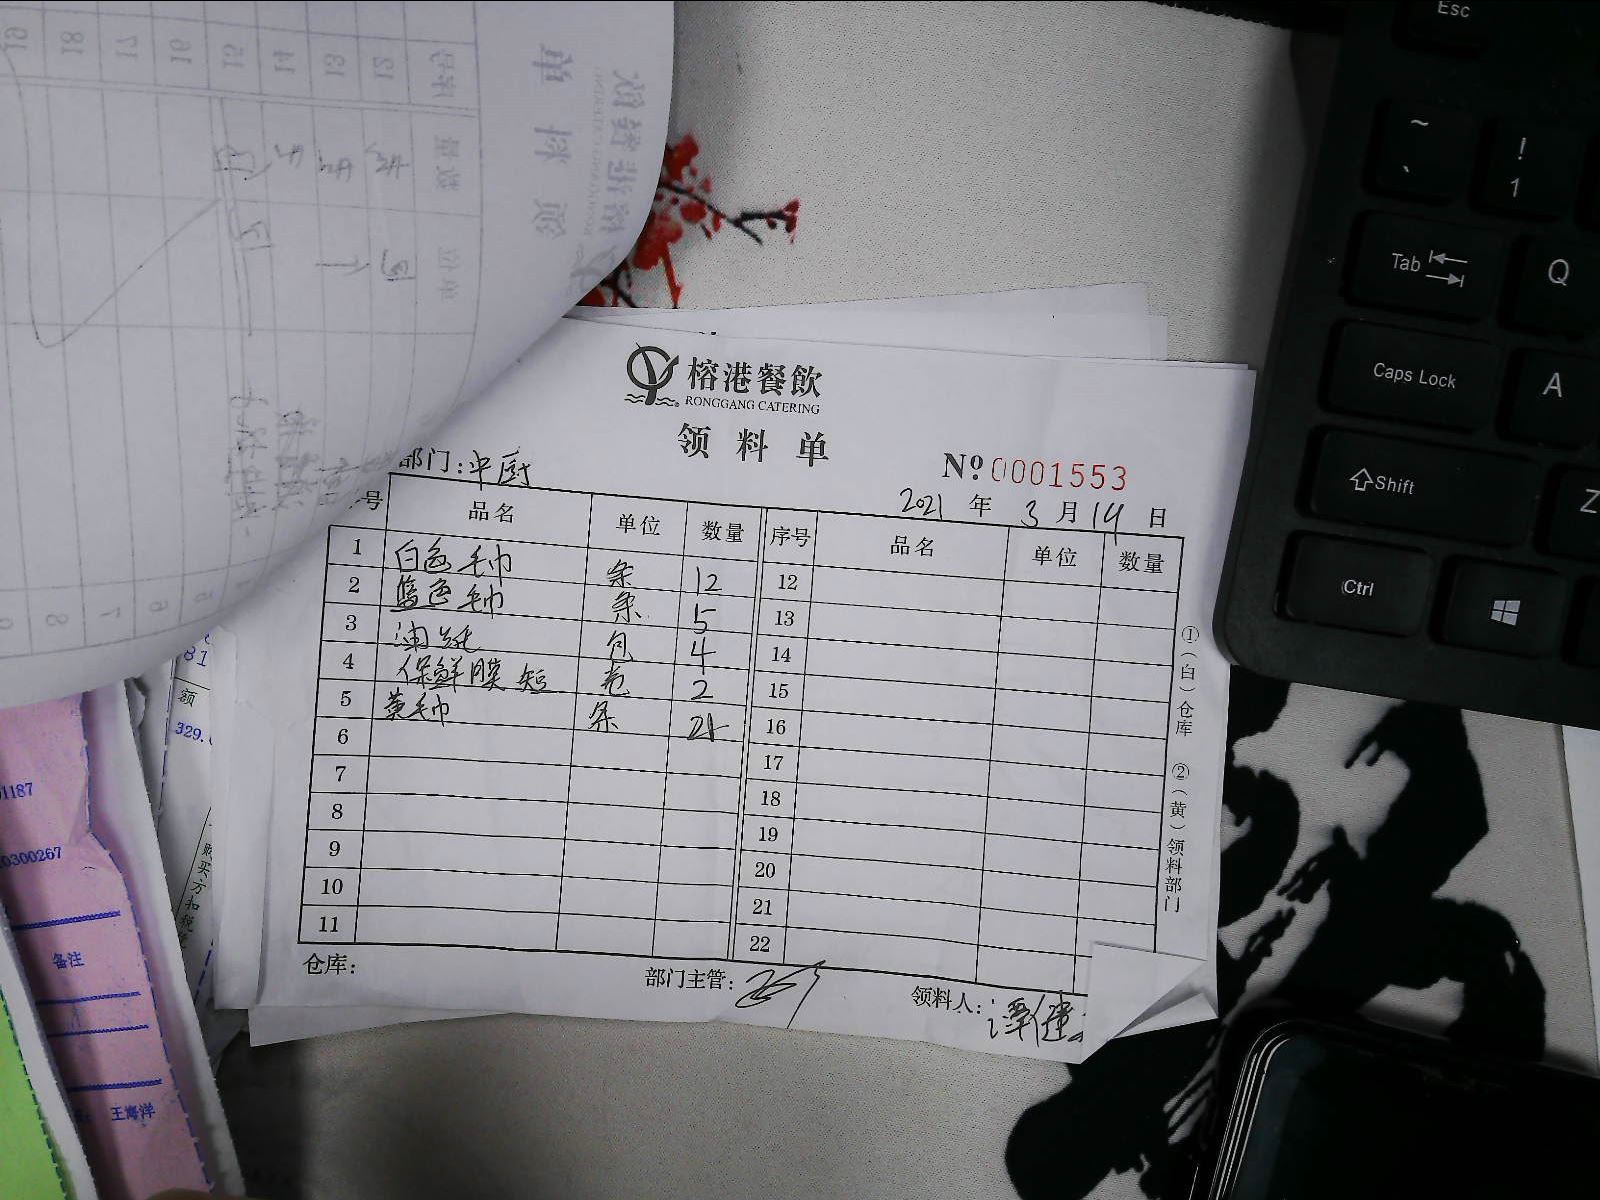 榕港餐飲
RONGGANG CATERING
领料单
部门:中厨
№ 0001553
2021 年 3 月 14 日
号 品名 单位 数量 序号 品名 单位 数量
1 白色毛巾 条 12 12
2 蓝色毛巾 条 5 13
3 油纸 包 4 14
4 保鲜膜 短 卷 2 15
5 黄毛巾 条 21 16
6 17
7 18
8 19
9 20
10 21
11 22
仓库: 部门主管: 领料人:谭健
①(白)仓库 ②(黄)领料部门
额
329.
购买方扣税凭
1187
0300267
备注
王海洋
Esc
~ `
! 1
Tab
Q
Caps Lock
A
Shift
Z
Ctrl